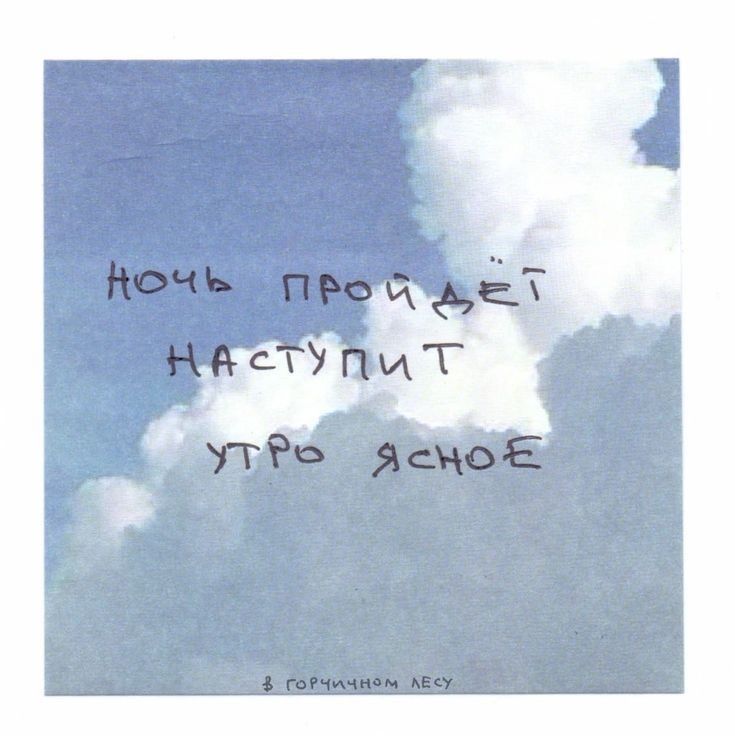 НОЧЬ ПРОЙДЁТ
НАСТУПИТ
УТРО ЯСНОЕ
В ГОРЧИЧНОМ ЛЕСУ